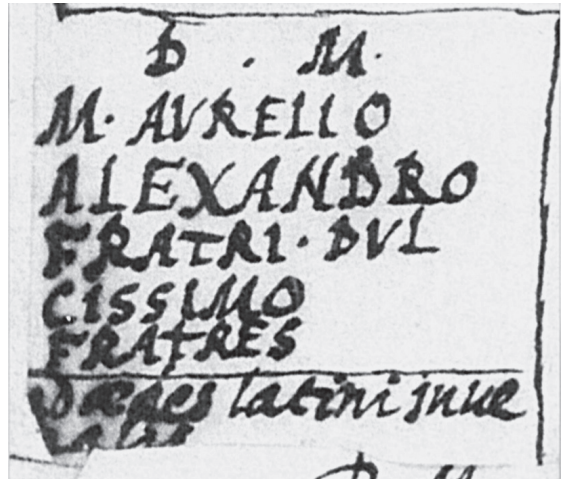 D . M.
M. AVRELIO
ALEXANDRO
FRATRI . DVL
CISSIMO
FRATRES
latini inue
D M